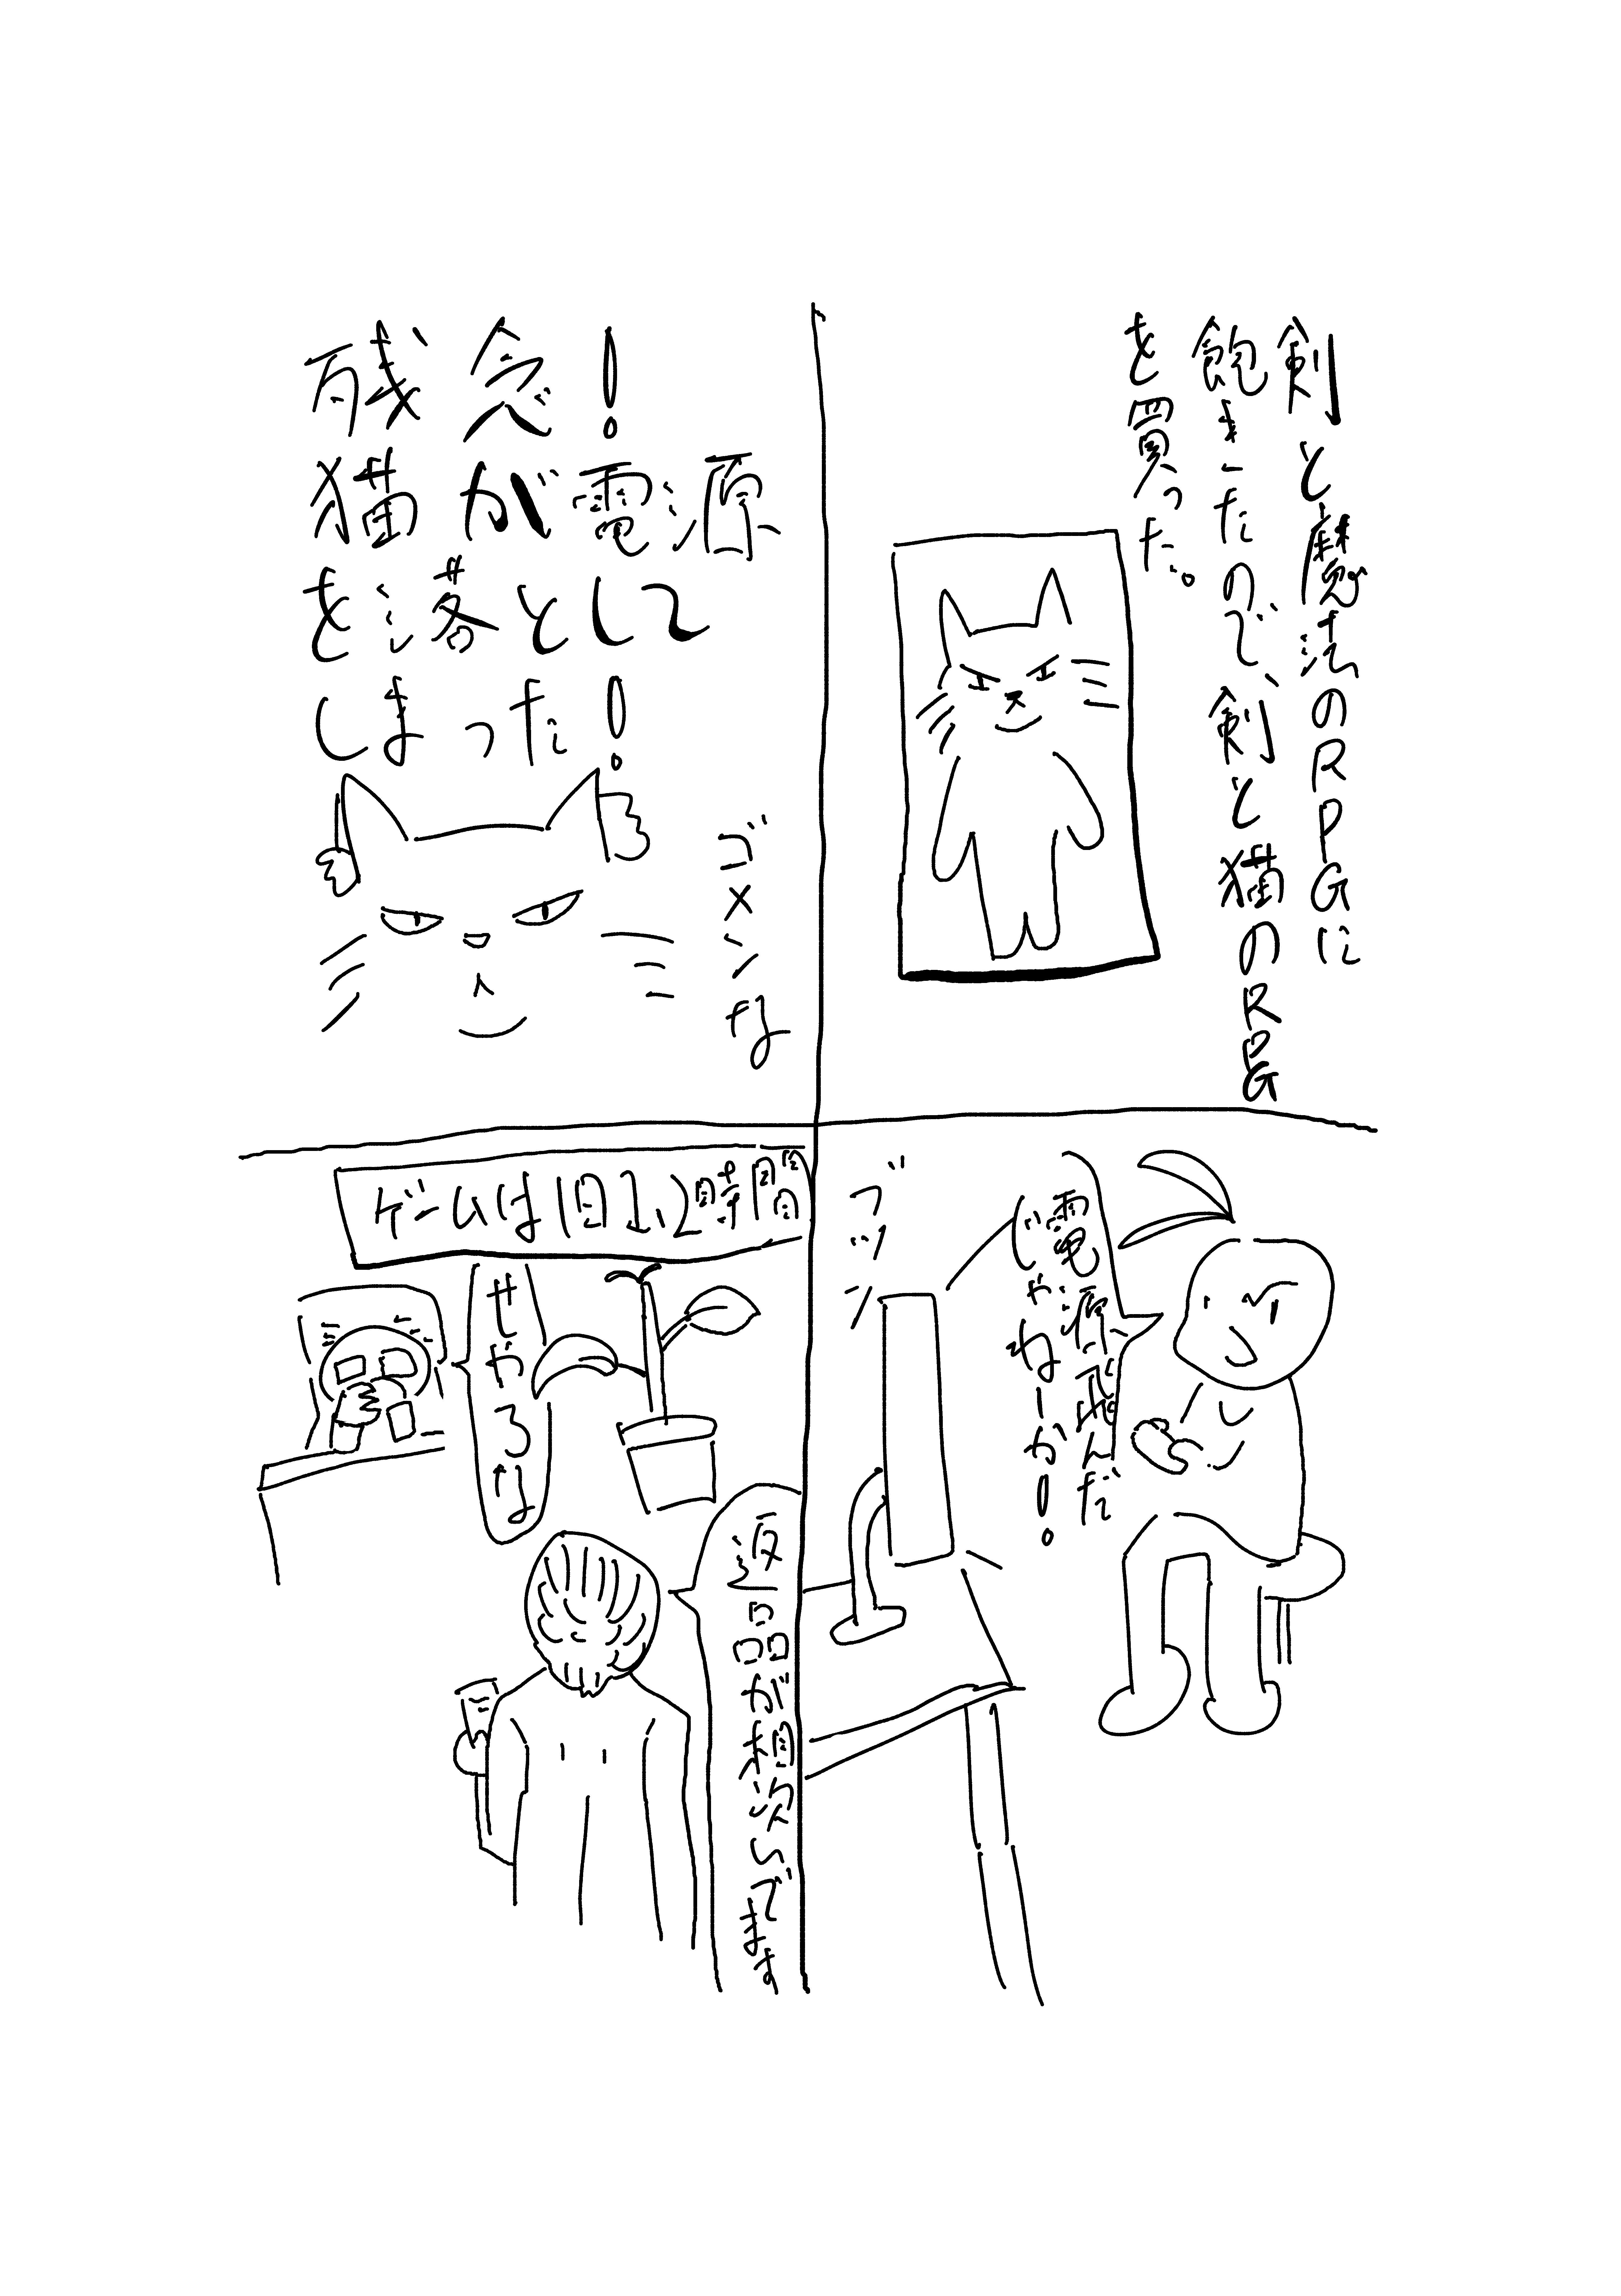 剣と魔法のRPGに
飽きたので、剣と猫のRPG
を買った。
残念!
猫が電源
を落として
しまった!
ゴメンな
電源飛んだ
じゃねーか!
ブツン
ゲームは1日1、2時間
せやろな
返品が相次いでます